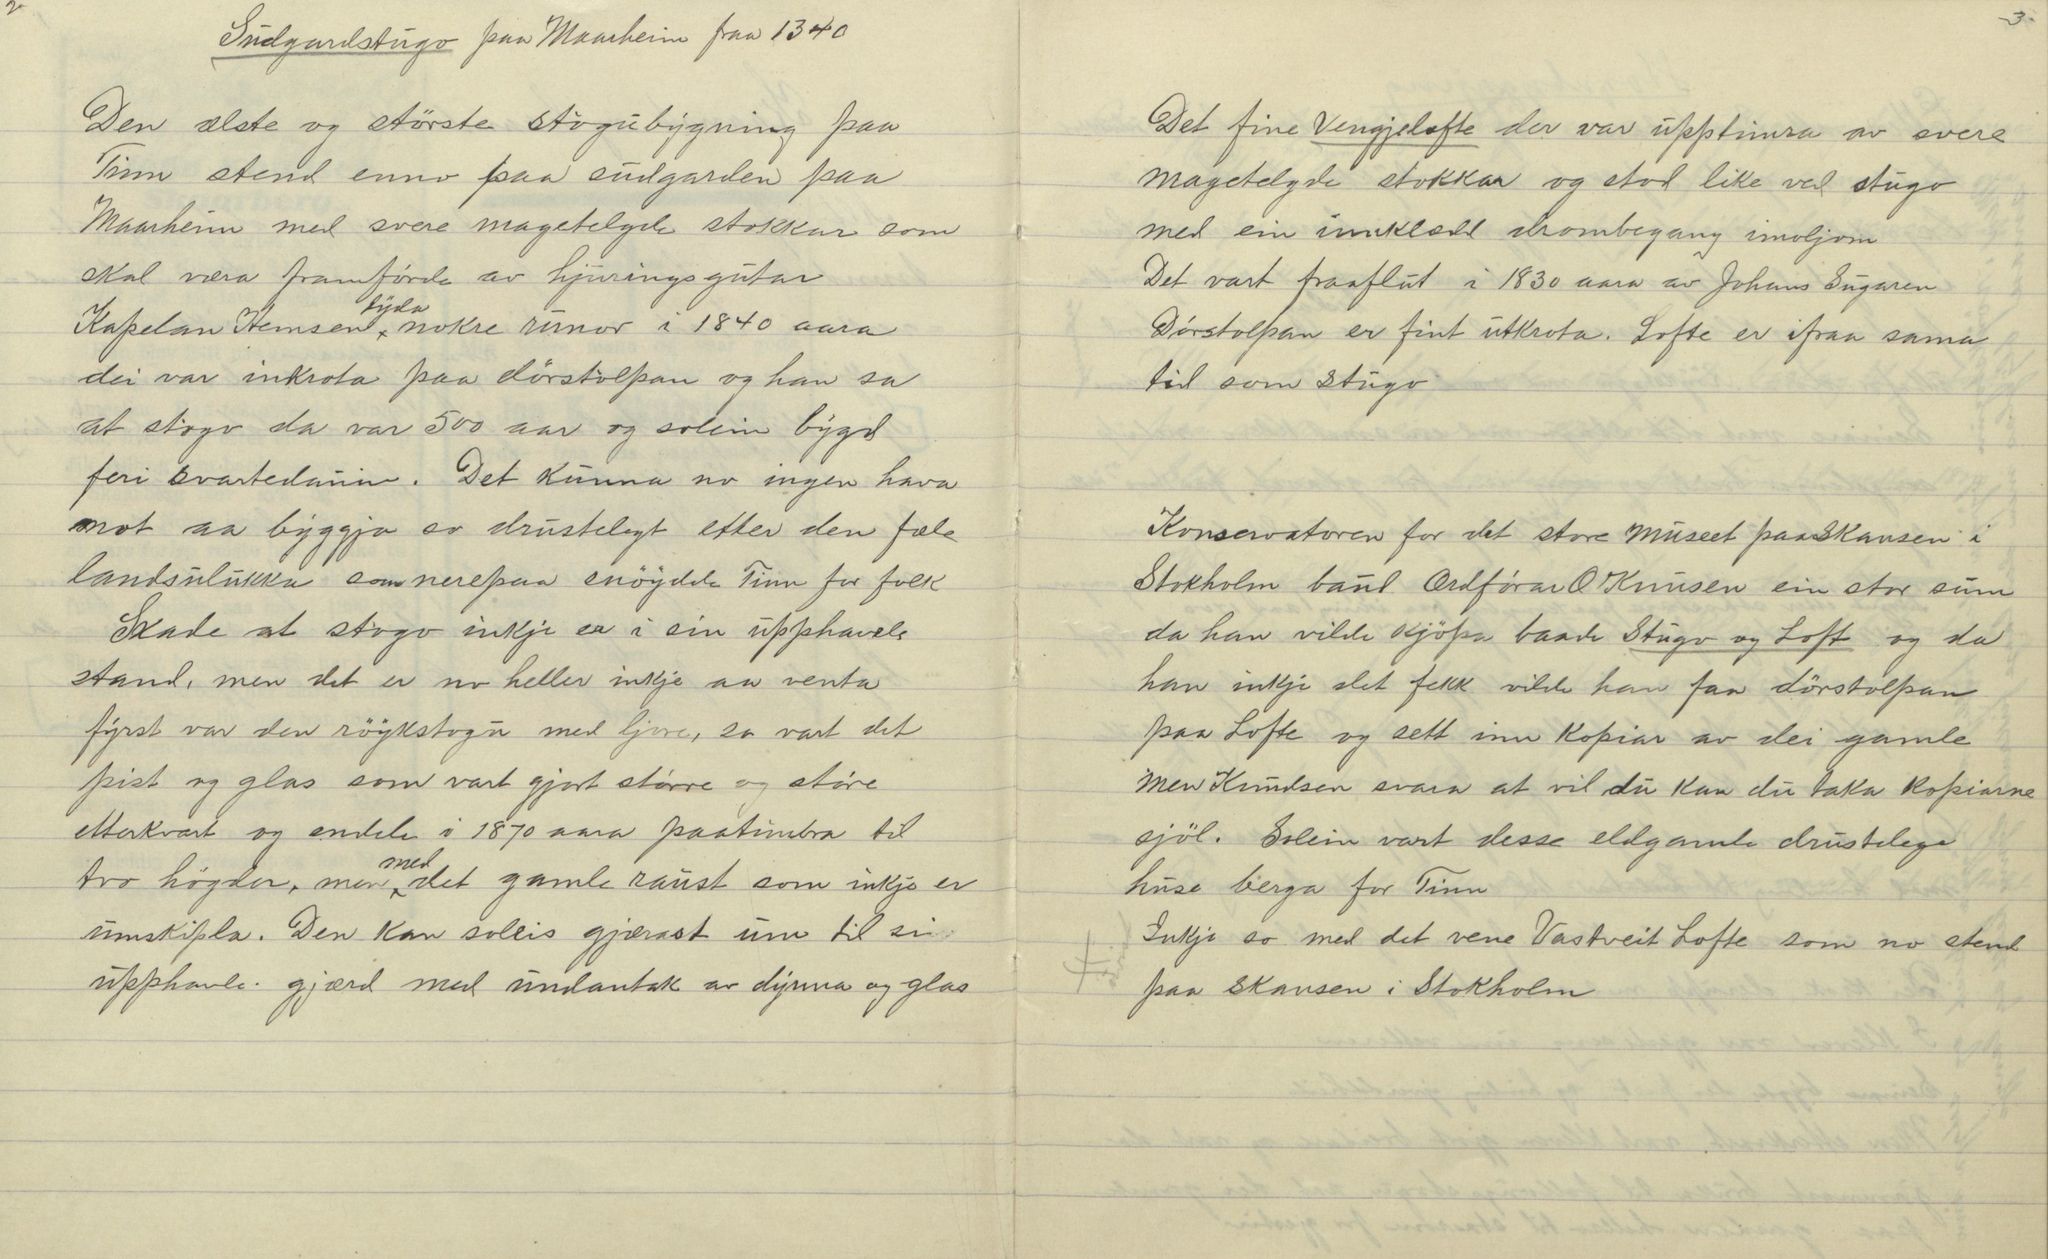 2
Sudgardstugo paa Maarheim fraa 1340
Den ælste og störste stogubygning paa
Tinn stend enno paa sudgarden paa
Maarheim med svere magetelgde stokkar som
skal væra framförde av hjuringsgutar
Kapelan Hemsen tyda nokre runor i 1840 aara
dei var inkrota paa dörstolpan og han sa
at stogo da var 500 aar og solein bygd
feri svartedauin. Det kunna no ingen hava
mot aa byggja so drustelegt etter den fæle
landsulukka som nerepaa snöydde Tinn for folk
Skade at stogo inkje er i sin upphavele
stand, men det er no heller inkje aa venta
fyrst var den röykstogu med ljore, so vart det
pist og glas som vart gjort större og störe
etterkvart og endele i 1870 aara paatimbra til
tvo högder, men med det gamle raust som inkje er
umskipla. Den kan soleis gjærast um til si
upphavle. gjærd med undantak av dyrna og glas
3
Det fine Vengjelofte der var upptimra av svere
magetelgde stokkar og stod like ved stugo
med ein innklædd drombegang imoljom
Det vart fraaflut i 1830 aara av Johans Sugaren
Dörstolpan er fint utkrota. Lofte er ifraa sama
tid som stugo
Konservatoren for det store Museet paa Skansen i
Stokholm baud Ordförar O Knusen ein stor sum
da han vilde kjöpa baade Stugo og Loft og da
han inkje det fekk vilde han faa dörstolpan
paa Lofte og sett inn Kopiar av dei gamle
Men Knudsen svara at vil du kan du taka Kopiarne
sjöl. Solein vart desse eldgamle drustelege
huse berga for Tinn
Inkje so med det vene Vastveit Lofte som no stend
paa Skansen i Stokholm